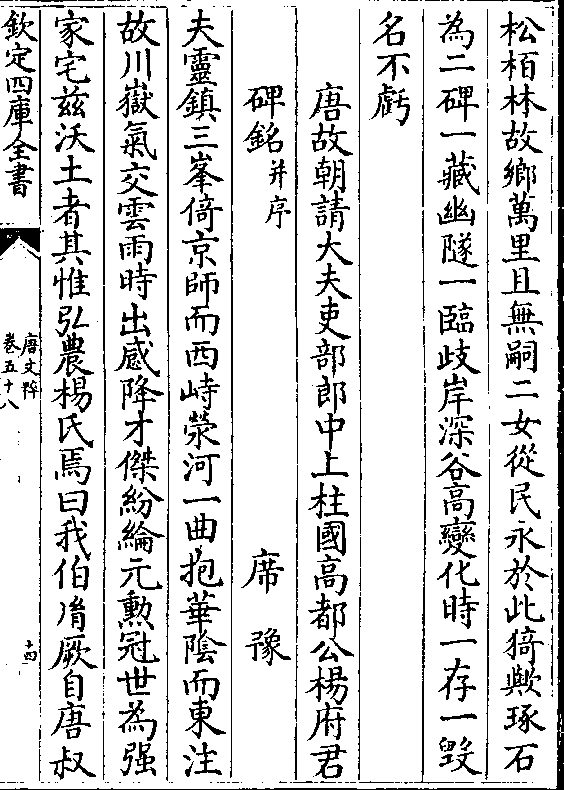 松栢林故鄉萬里且無嗣二女從民永於此猗歟琢石
為二碑一藏幽隧一臨歧岸深谷高變化時一存一毀
名不虧
唐故朝請大夫吏部郎中上柱國高都公楊府君
碑銘并序 席豫
夫靈鎮三峯倚京師而西峙滎河一曲抱華陰而東注
故川嶽氣交雲雨時出感降才傑紛綸元勲冠世為强
家宅兹沃土者其惟弘農楊氏焉曰我伯胤厥自唐叔
欽定四庫全書
唐文粹
卷五十八
十四